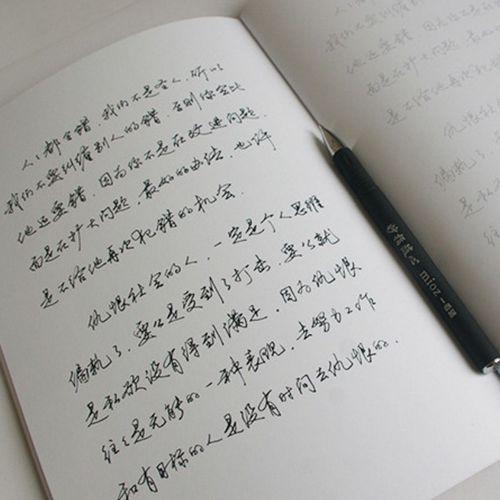 人人都会错，我们不是圣人，所以
我们不要纠缠别人的错，否则你会比
他还要错，因为你不是在改进问题，
而是在扩大问题，最好的办法，也许
是不给他再次犯错的机会．
仇恨社会的人，一定是个人思维
偏执了，要么是受到了打击，要么就
是私欲没有得到满足，因为仇恨
往往是无能的一种表现，去努力工作
和有目标的人是没有时间去仇恨的．
mioz